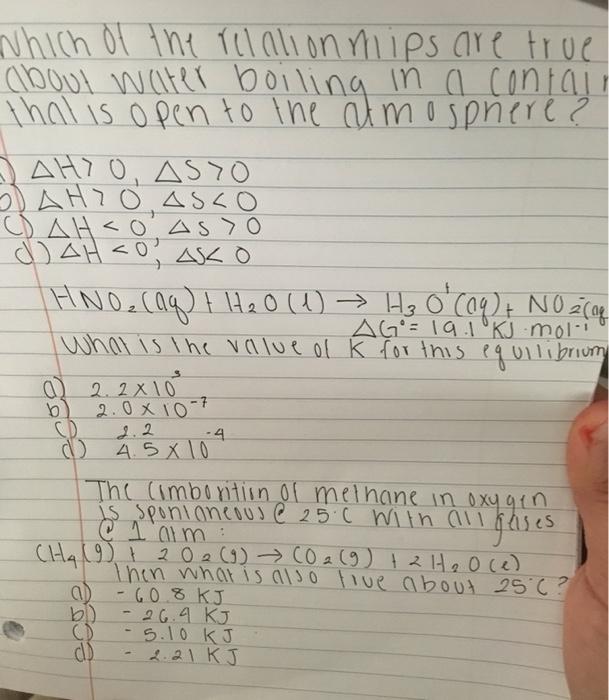 Which of the relationships are true
about water boiling in a contain
that is open to the atmosphere?
a) ΔH>0, ΔS>0
b) ΔH>0, ΔS<0
c) ΔH<0, ΔS>0
d) ΔH<0, ΔS<0
HNO₂(aq) + H₂O(l) → H₃O⁺(aq) + NO₂⁻(aq
ΔG°= 19.1 KJ·mol⁻¹
What is the value of K for this equilibrium
a) 2.2×10³
b) 2.0×10⁻⁷
c) 2.2
d) 4.5×10⁻⁴
The combustion of methane in oxygen
is spontaneous @ 25°C with all gases
@ 1 atm:
CH₄(g) + 2O₂(g) → CO₂(g) + 2H₂O(l)
Then what is also true about 25°C?
a) -60.8 KJ
b) -26.4 KJ
c) -5.10 KJ
d) -2.21 KJ